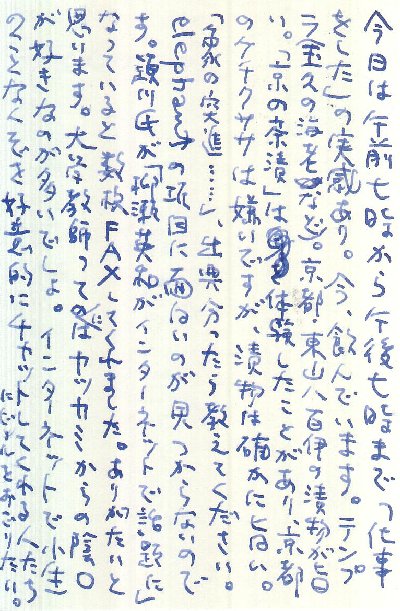 今日は午前七時から午後七時まで「仕事
をした」の実感あり。今、飲んでいます。テンプ
ラ金久の海老など。京都・東山八百伊の漬物が旨
い。「京の茶漬」は体験したことがあり、京都
のケチクササは嫌いですが、漬物は確かに旨い。
「象の突進……」、出典分ったら教えてください。
elephantの項目に面白いのが見つからないので
す。頴川氏が「柳瀬英和がインターネットで話題に」
なっていると数枚FAXしてくれました。ありがたいと
思います。大学教師ってのはヤッカミからの陰口
が好きなのが多いでしょ。インターネットで小生
のことなんぞを好意的にチャットしてくれる人たち
にビールをおごりたい。